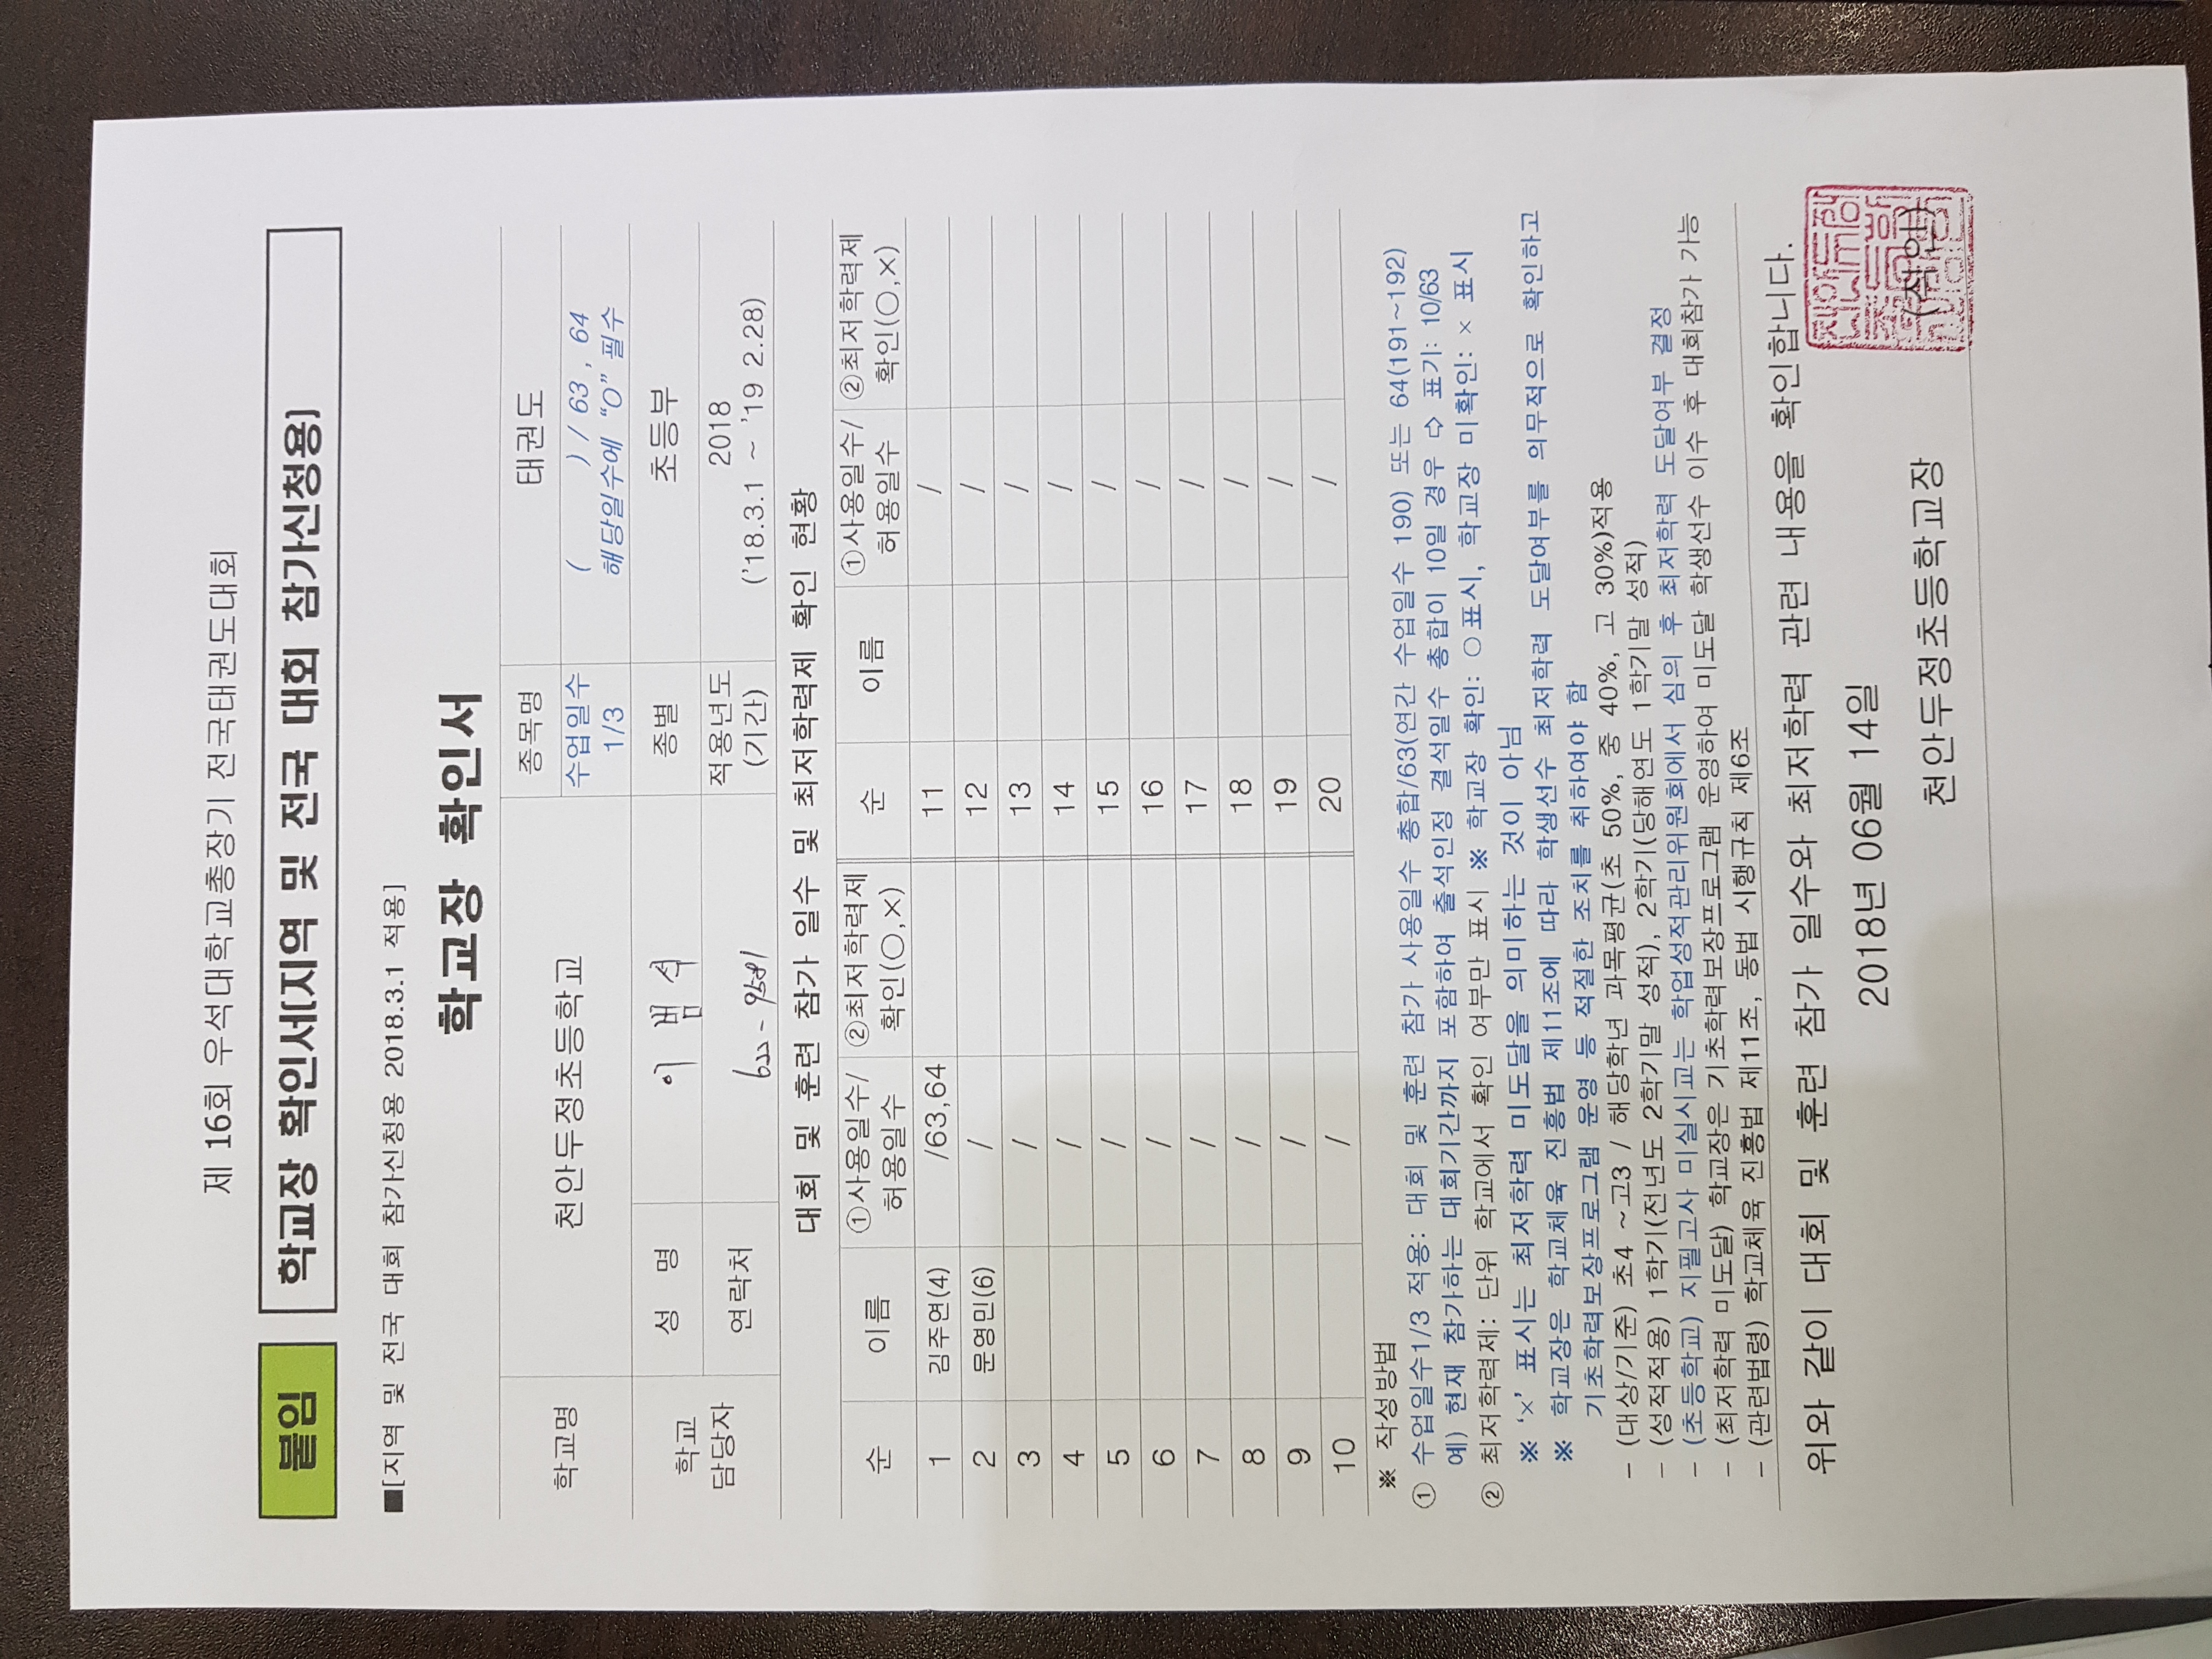 제 16회 우석대학교총장기 전국태권도대회
붙임 학교장 확인서(지역 및 전국 대회 참가신청용)
■[지역 및 전국 대회 참가신청용 2018.3.1 적용]
학교장 확인서
학교명 천안두정초등학교 종목명 태권도
수업일수 1/3 ( ) / 63 , 64
해당일수에 “O” 필수
학교 담당자 성 명 이범석 종별 초등부
연락처 622-9581 적용년도 (기간) 2018
('18.3.1 ~ '19 2.28)
대회 및 훈련 참가 일수 및 최저학력제 확인 현황
순 이름 ①사용일수/허용일수 ②최저학력제 확인(○,×) 순 이름 ①사용일수/허용일수 ②최저학력제 확인(○,×)
1 김주연(4) /63,64 11 /
2 문영민(6) / 12 /
3 / 13 /
4 / 14 /
5 / 15 /
6 / 16 /
7 / 17 /
8 / 18 /
9 / 19 /
10 / 20 /
※ 작성방법
① 수업일수1/3 적용: 대회 및 훈련 참가 사용일수 총합/63(연간 수업일수 190) 또는 64(191~192)
예) 현재 참가하는 대회기간까지 포함하여 출석인정 결석일수 총합이 10일 경우 ⇨ 표기: 10/63
② 최저학력제: 단위 학교에서 확인 여부만 표시 ※ 학교장 확인: ○표시, 학교장 미확인: × 표시
※ ‘×’ 표시는 최저학력 미도달을 의미하는 것이 아님
※ 학교장은 학교체육 진흥법 제11조에 따라 학생선수 최저학력 도달여부를 의무적으로 확인하고
기초학력보장프로그램 운영 등 적절한 조치를 취하여야 함
- (대상/기준) 초4 ~고3 / 해당학년 과목평균(초 50%, 중 40%, 고 30%)적용
- (성적적용) 1학기(전년도 2학기말 성적), 2학기(당해연도 1학기말 성적)
- (초등학교) 지필고사 미실시교는 학업성적관리위원회에서 심의 후 최저학력 도달여부 결정
- (최저학력 미도달) 학교장은 기초학력보장프로그램 운영하여 미도달 학생선수 이수 후 대회참가 가능
- (관련법령) 학교체육 진흥법 제11조, 동법 시행규칙 제6조
위와 같이 대회 및 훈련 참가 일수와 최저학력 관련 내용을 확인합니다.
2018년 06월 14일
천안두정초등학교장 (직인)